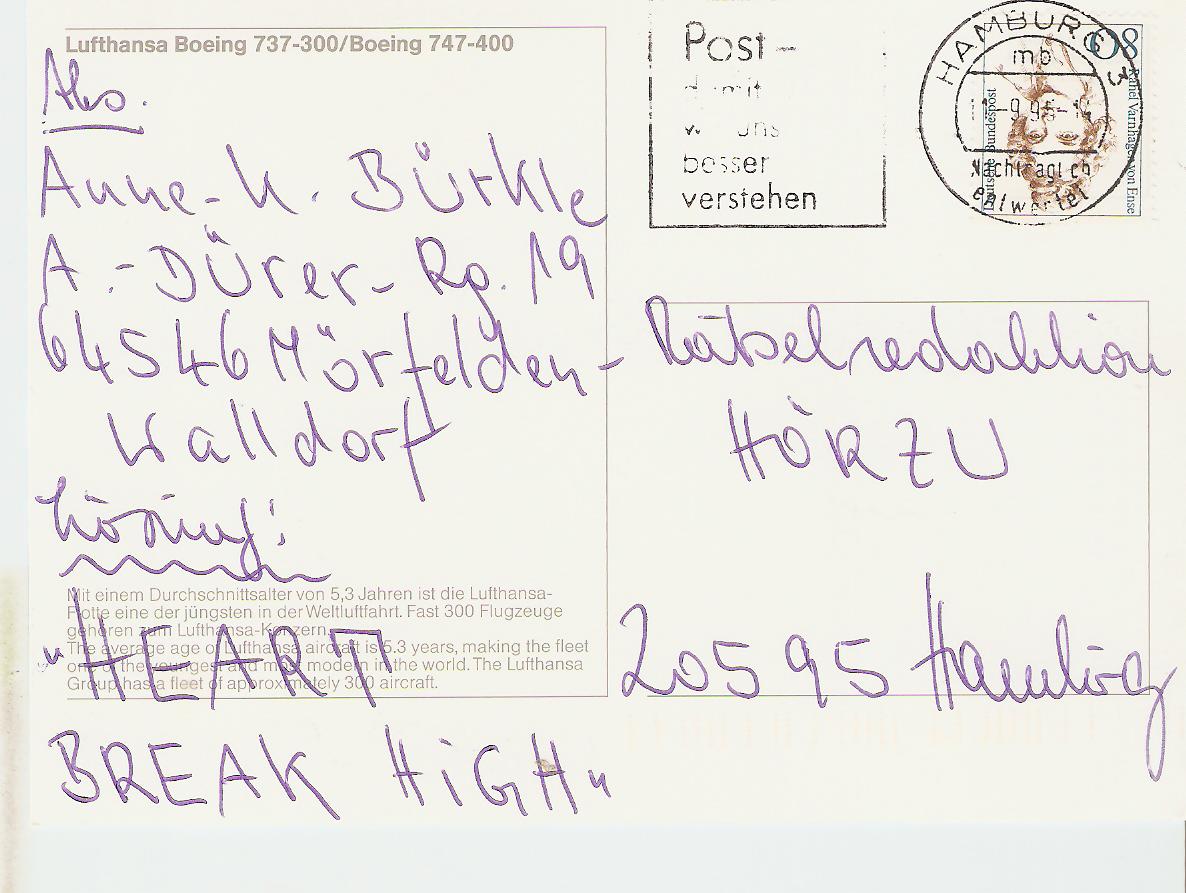 Lufthansa Boeing 737-300/Boeing 747-400
Abs.
Anne-K. Bürkle
A.-Dürer-Rg. 19
64546 Mörfelden-
Walldorf
Lösung:
Mit einem Durchschnittsalter von 5,3 Jahren ist die Lufthansa-
Flotte eine der jüngsten in der Weltluftfahrt. Fast 300 Flugzeuge
gehören zum Lufthansa-Konzern.
The average age of Lufthansa aircraft is 5.3 years, making the fleet
one of the youngest and most modern in the world. The Lufthansa
Group has a fleet of approximately 300 aircraft.
"HEART
BREAK HiGH"
Post-
damit
wir uns
besser
verstehen
HAMBURG 3
mb
-9.95-14
Nachträglich
entwertet
80
Deutsche Bundespost
Rahel Varnhagen von Ense
Rätselredaktion
HÖRZU
20595 Hamburg